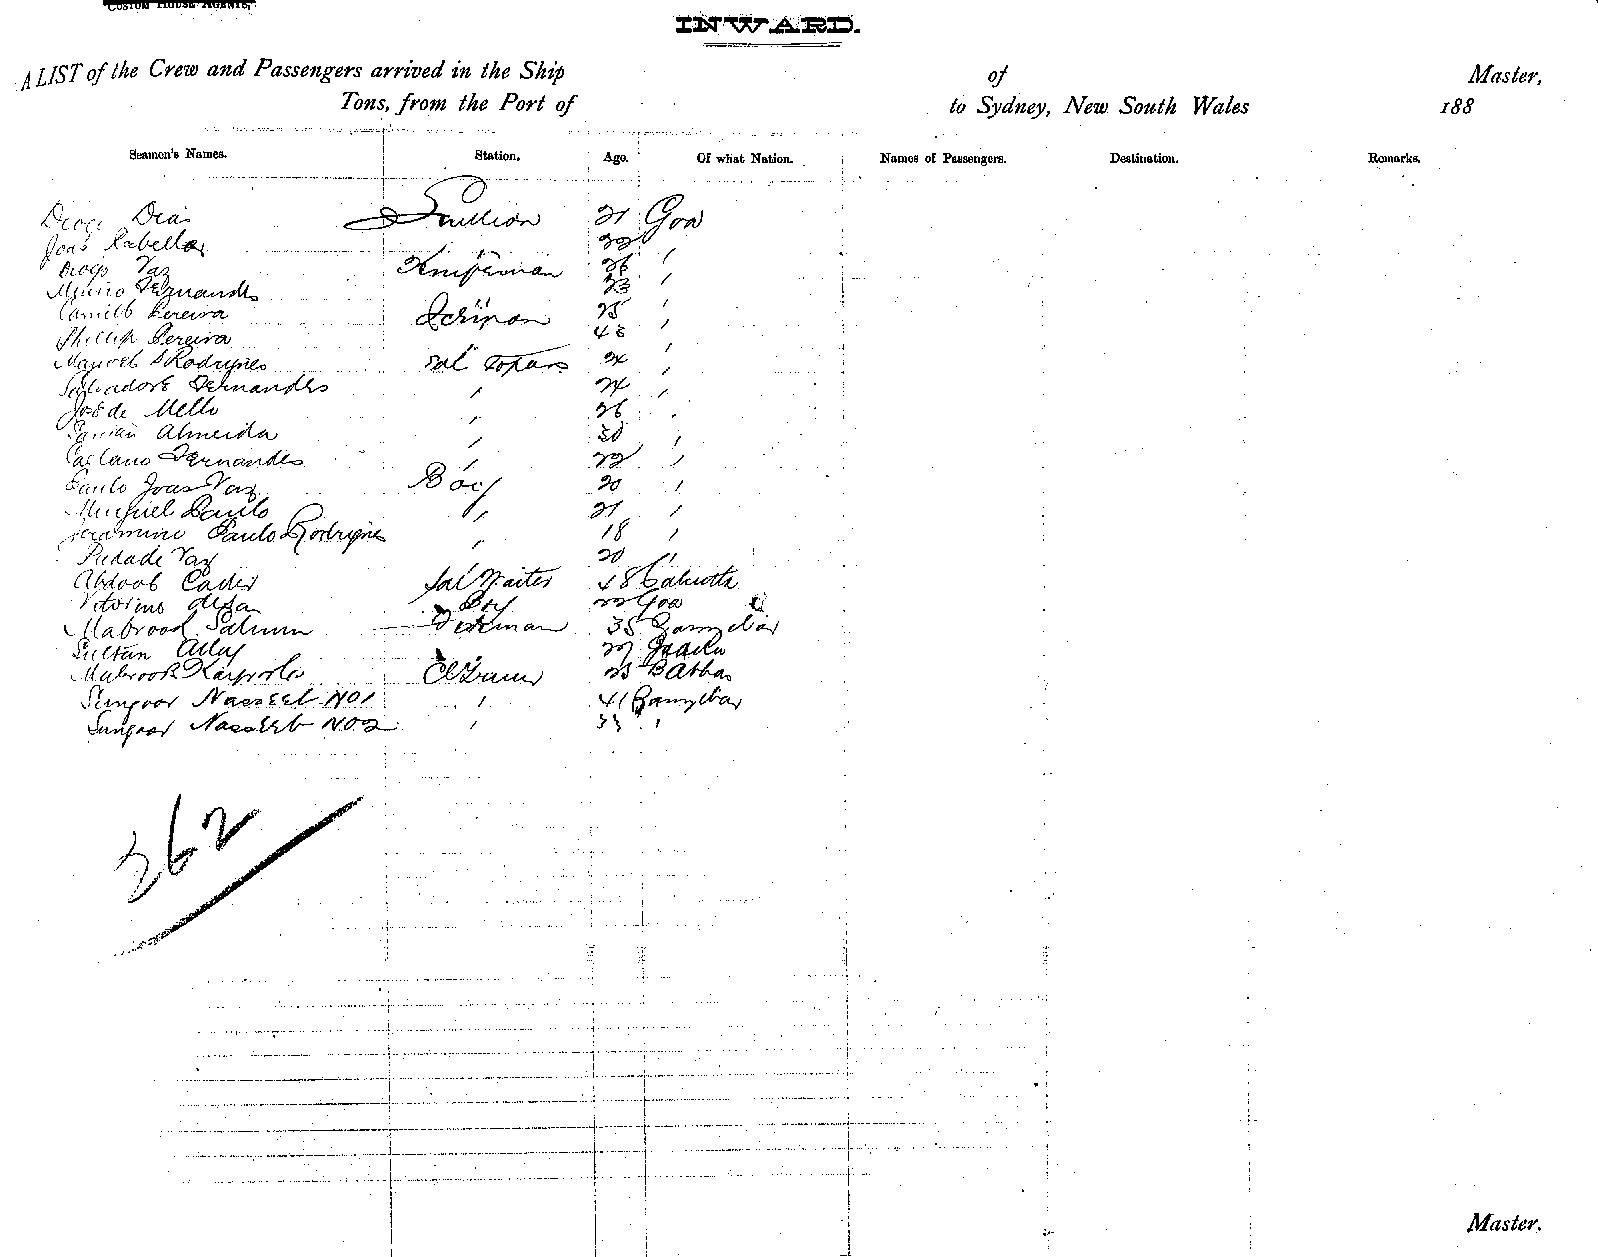 CUSTOM HOUSE AGENTS,
INWARD.
A LIST of the Crew and Passengers arrived in the Ship of Master,
Tons, from the Port of to Sydney, New South Wales 188
Seamen's Names. Station. Age. Of what Nation. Names of Passengers. Destination. Remarks.
Diogo Dias Scullion 21 Goa
Joas Rabello 22 "
Diogo Vaz 26 "
Fernandes 23 "
Camillo Pereira 25 "
Phillip Pereira 48
Manoel S Rodrigues Sal Topars 24 "
Salvadore Fernandes " 24 "
Jose de Mello " 26 "
Almeida " 30 "
Caetano Fernandes " 22 "
Paulo Joas Vaz Boy 20 "
Minguel Paulo " 21 "
Paulo Rodrigues " 18 "
Piedade Vaz 20 "
Abdool Cader Sal Waiter 48 Calcutta
Vitorino Boy 22 Goa
Mabrook Salmin 35 Zanzibar
Sultan 27
Mabrook 25
Sungoor Nasseeb No 1 " 41 Zanzibar
Sungoor Nasseeb No 2 " 33 "
362
Master.